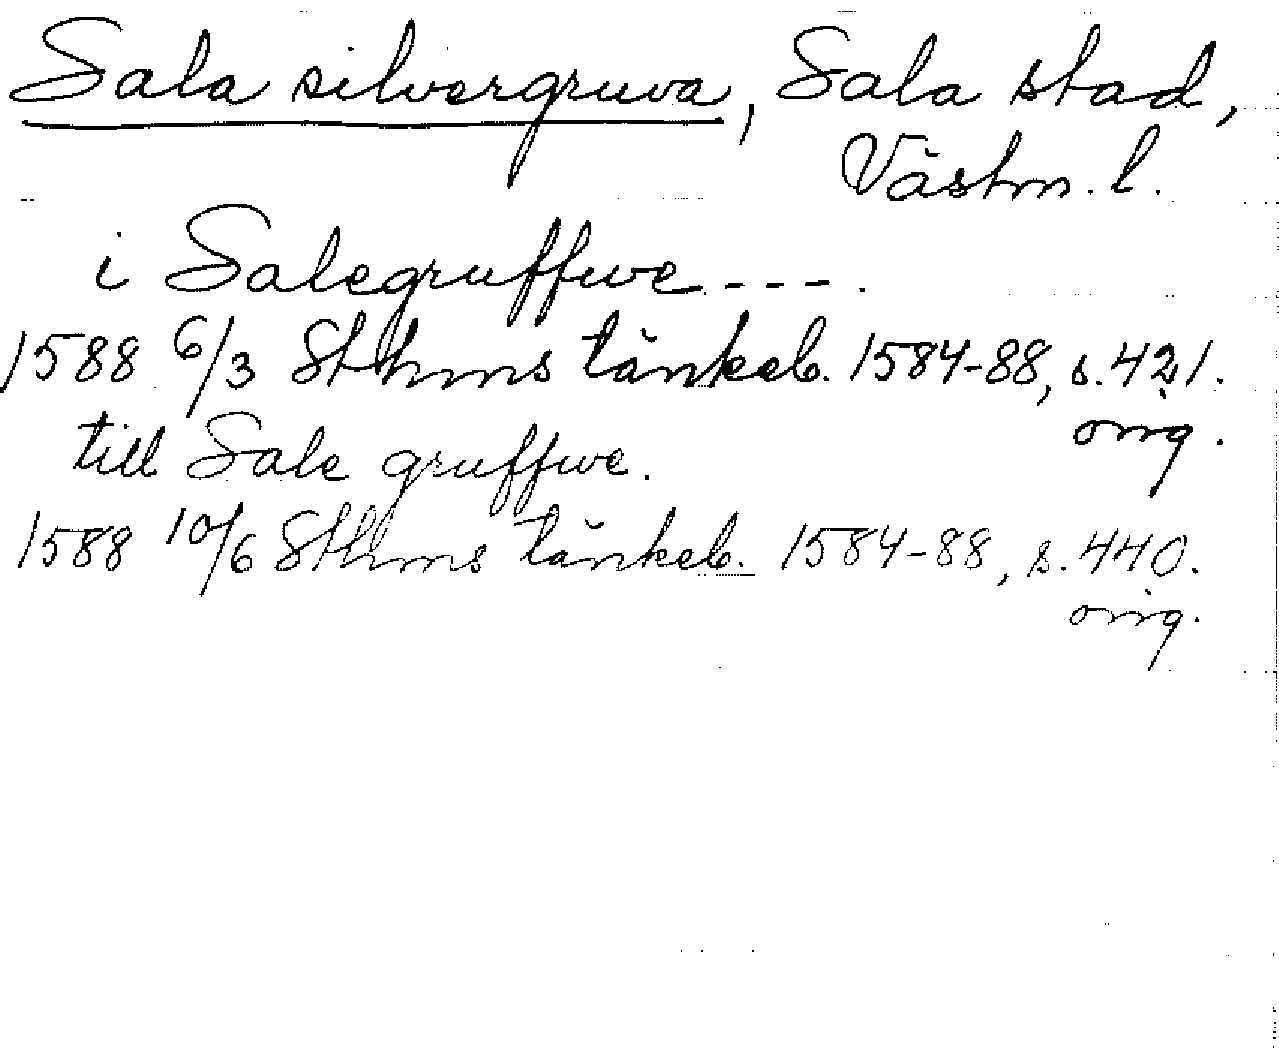 Sala silvergruva, Sala stad,
Västm. l.
i Salegruffwe ---.
1588 6/3 Sthms tänkeb. 1584-88, s. 421.
orig.
till Sale gruffwe.
1588 10/6 Sthms tänkeb. 1584-88, s. 440.
orig.